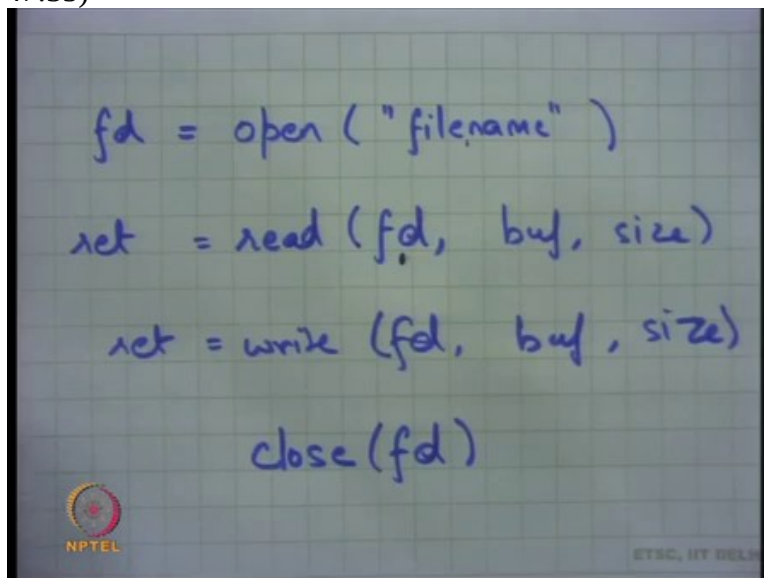 fd = open ( "filename" )
ret = read (fd, buf, size)
ret = write (fd, buf, size)
close (fd)
NPTEL
ETSC, IIT DELH